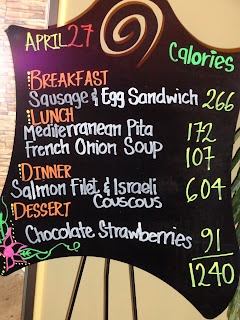 APRIL 27
Calories
BREAKFAST
Sausage & Egg Sandwich 266
LUNCH
Mediterranean Pita 172
French Onion Soup 107
DINNER
Salmon Filet & Israeli 604
Couscous
DESSERT
Chocolate Strawberries 91
1240